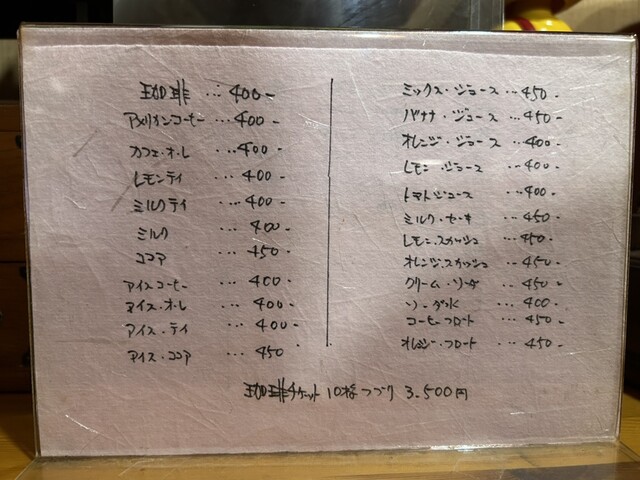 珈琲 … 400-
アメリカンコーヒー … 400-
カフェ・オ・レ … 400-
レモンティ … 400-
ミルクティ … 400-
ミルク … 400-
ココア … 450-
アイスコーヒー … 400-
アイス・オ・レ … 400-
アイス・ティ … 400-
アイス・ココア … 450
ミックス・ジュース … 450-
バナナ・ジュース … 450-
オレンジ・ジュース … 400-
レモン・ジュース … 400-
トマトジュース … 400-
ミルク・セーキ … 450-
レモン・スカッシュ … 450-
オレンジ・スカッシュ … 450-
クリーム・ソーダ … 450-
ソーダ水 … 400-
コーヒーフロート … 450-
オレンジ・フロート … 450-
珈琲チケット 10枚つづり 3.500円